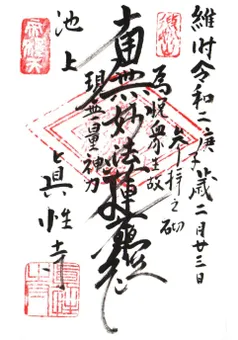 維時令和二庚子歳二月廿三日
参拝之砌
為悦衆生故
南無妙法蓮華経
現無量神力
池上
眞性寺